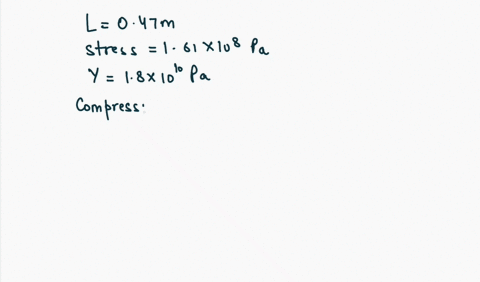 L = 0.47m
stress = 1.61 × 10⁸ Pa
Y = 1.8 × 10¹⁰ Pa
Compress: